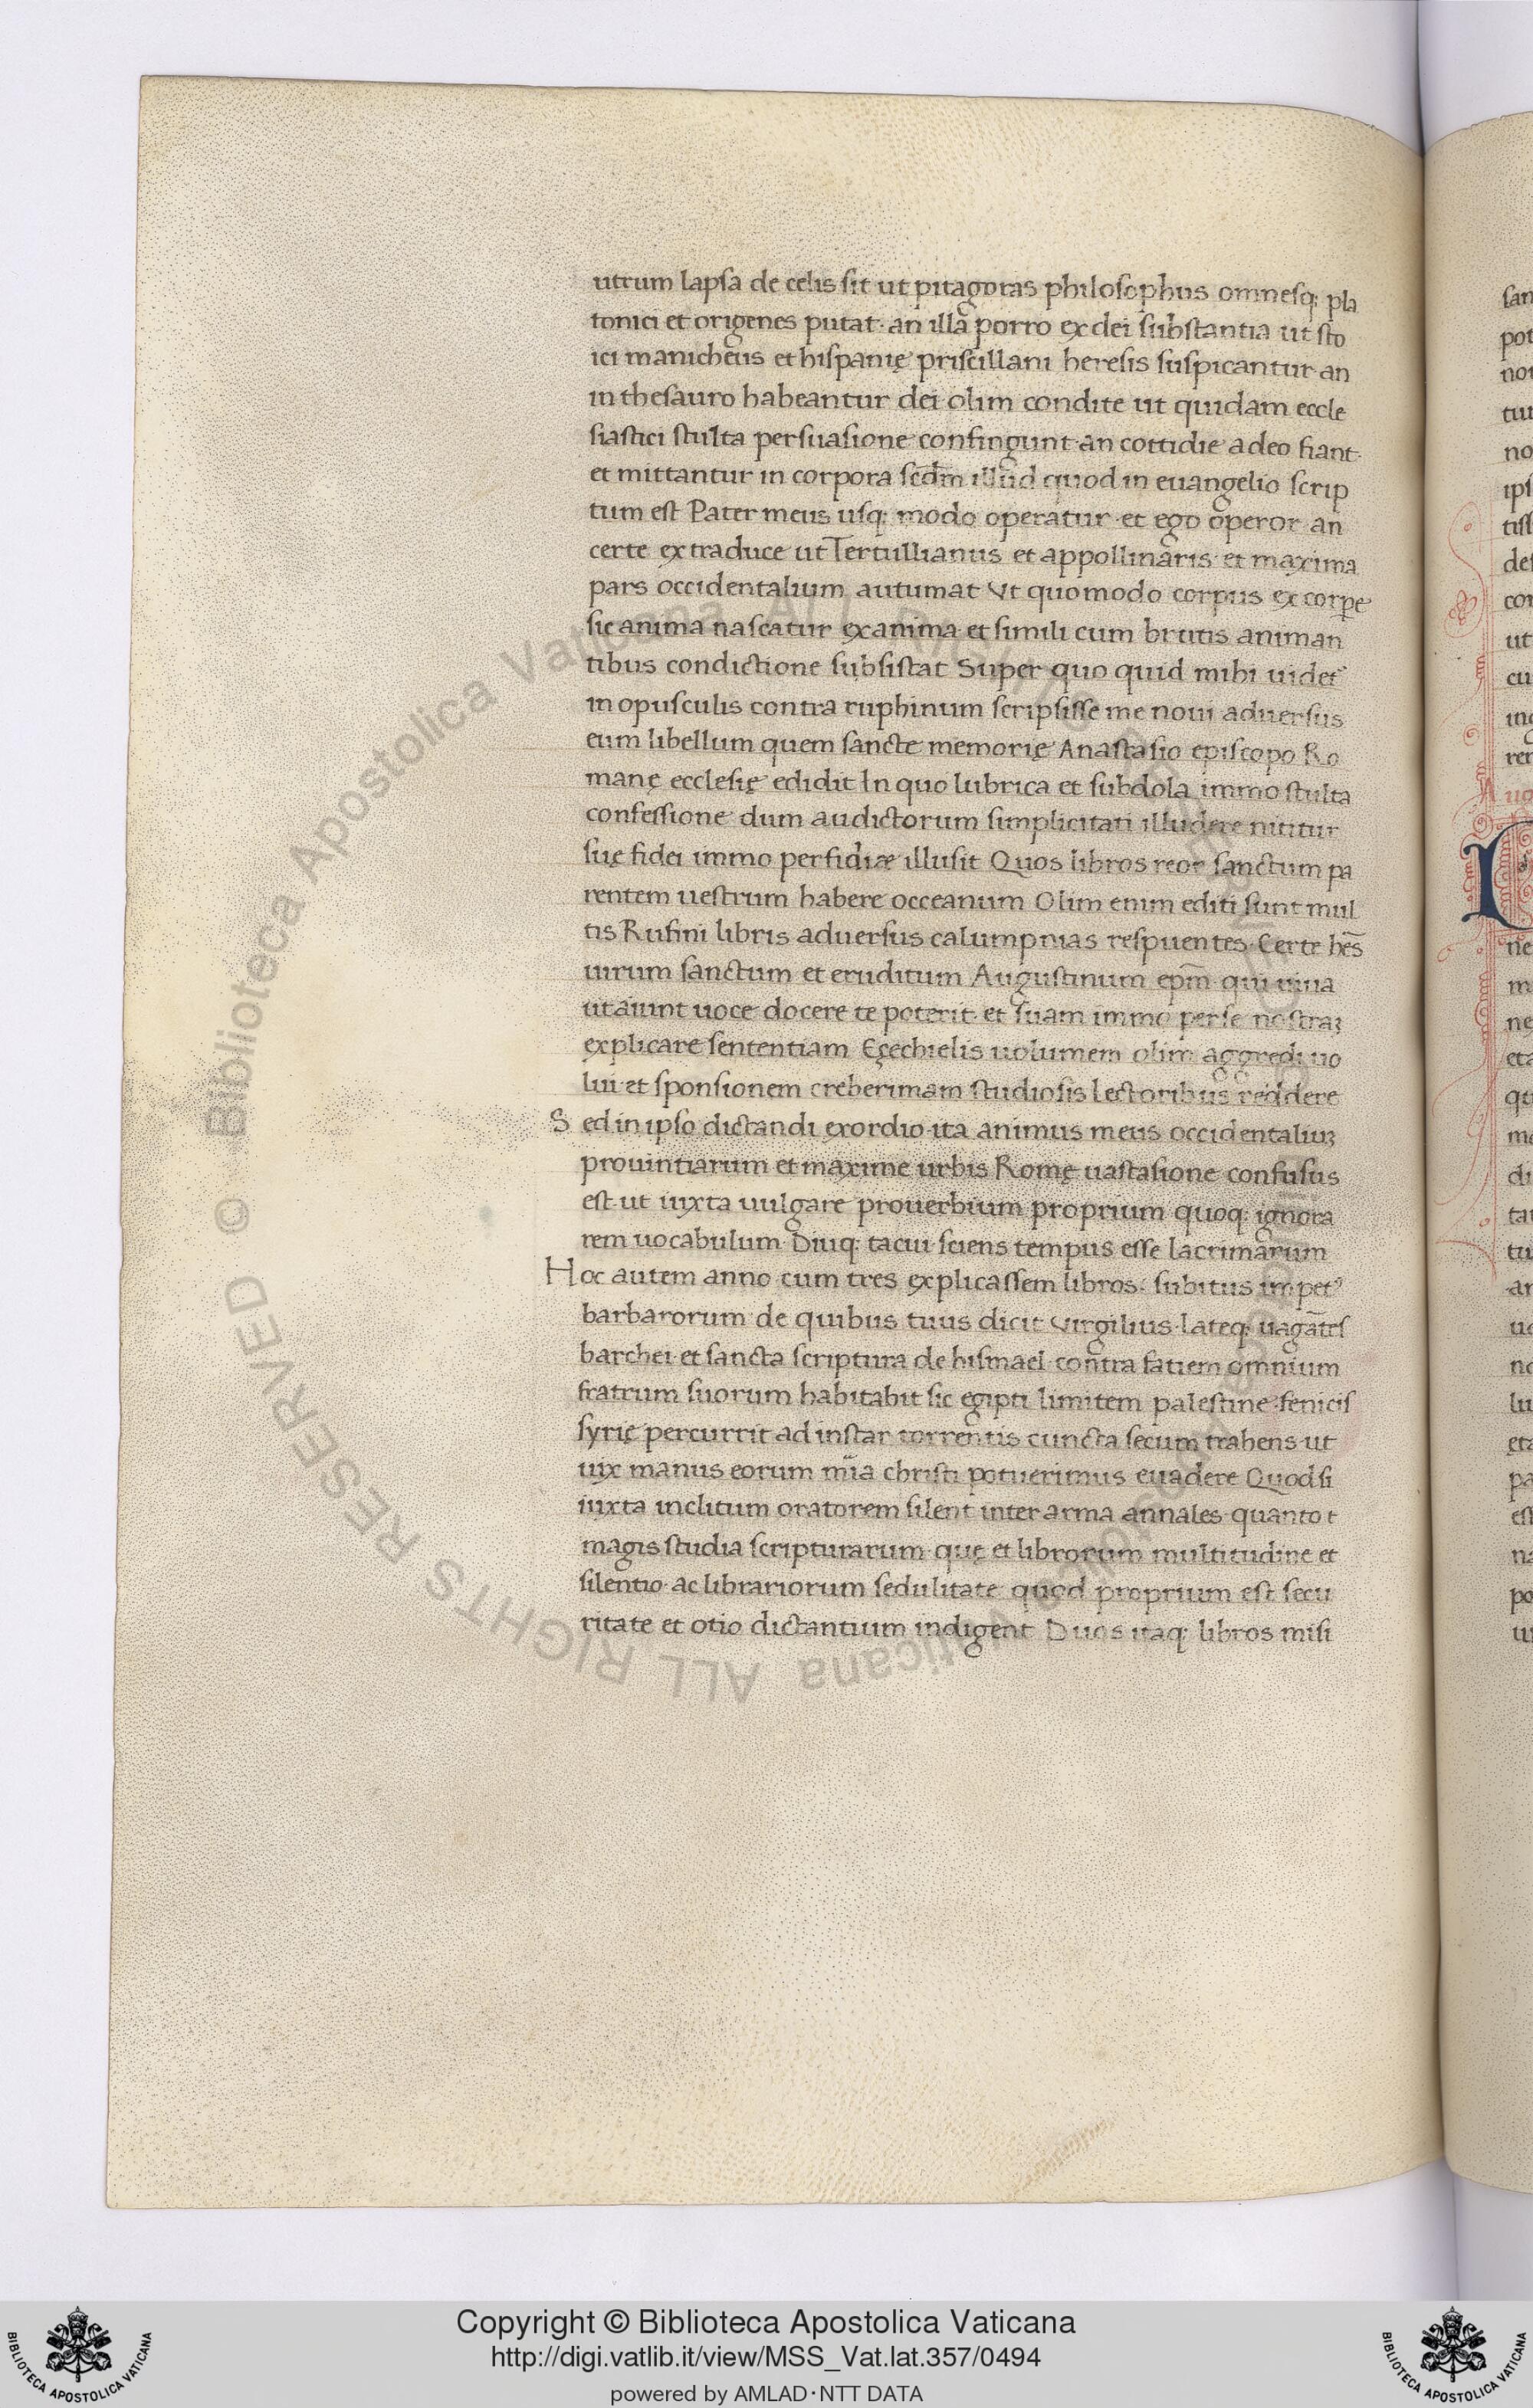 utrum lapsa de celis sit ut pitagoras philosophus omnesq; pla
tonici et origenes putat· an illa porro ex dei substantia ut sto
ici manicheus et hispanię priscillani heresis suspicantur an
in thesauro habeantur dei olim condite ut quidam eccle
siastici stulta persuasione confingunt· an cottidie a deo fiant·
et mittantur in corpora scđm illud quod in euangelio scrip
tum est Pater meus usq; modo operatur· et ego operor an
certe ex traduce ut Tertullianus et appollinaris· et maxima
pars occidentalium autumat Vt quomodo corpus ex corpe
sic anima nascatur ex anima et simili cum brutis animan
tibus condictione subsistat Super quo quid mihi uidet᷒
in opusculis contra ruphinum scripsisse me noui aduersus
eum libellum quem sancte memorię Anastasio episcopo Ro
manę ecclesię edidit In quo lubrica et subdola immo stulta
confessione dum audictorum simplicitati illudere nititur
suę fidei immo perfidiæ illusit Quos libros reor sanctum pa
rentem uestrum habere occeanum Olim enim editi sunt mul
tis Rufini libris aduersus calumpnias respuentes· Certe hẽs
uirum sanctum et eruditum Augustinum ep̃m qui uiua
ut aiunt uoce docere te poterit· et suam immo per se nostraꝫ
explicare sententiam Ezechielis uolumem olim aggredi uo
lui· et sponsionem creberimam studiosis lectoribus reddere
Sed in ipso dictandi exordio ita animus meus occidentaliuꝫ
prouintiarum et maxime urbis Romę uastasione confusus
est· ut iuxta uulgare prouerbium proprium quoq; ignora
rem uocabulum· Diuq; tacui sciens tempus esse lacrimarum
Hoc autem anno cum tres explicassem libros· subitus impetꝰ
barbarorum de quibus tuus dicit Virgilius· lateq; uagãtes
barchei· et sancta scriptura de hismael contra fatiem omnium
fratrum suorum habitabit sic egipti limitem palestine fenicis
syrię percurrit ad instar torrentis cuncta secum trahens· ut
uix manus eorum mĩa christi potuerimus euadere Quod si
iuxta inclitum oratorem silent inter arma annales· quanto t
magis studia scripturarum· quę et librorum multitudine et
silentio· ac librariorum sedulitate quod proprium est secu
ritate et otio dictantium indigent Duos itaq; libros misi
Copyright © Biblioteca Apostolica Vaticana
http://digi.vatlib.it/view/MSS_Vat.lat.357/0494
powered by AMLAD·NTT DATA